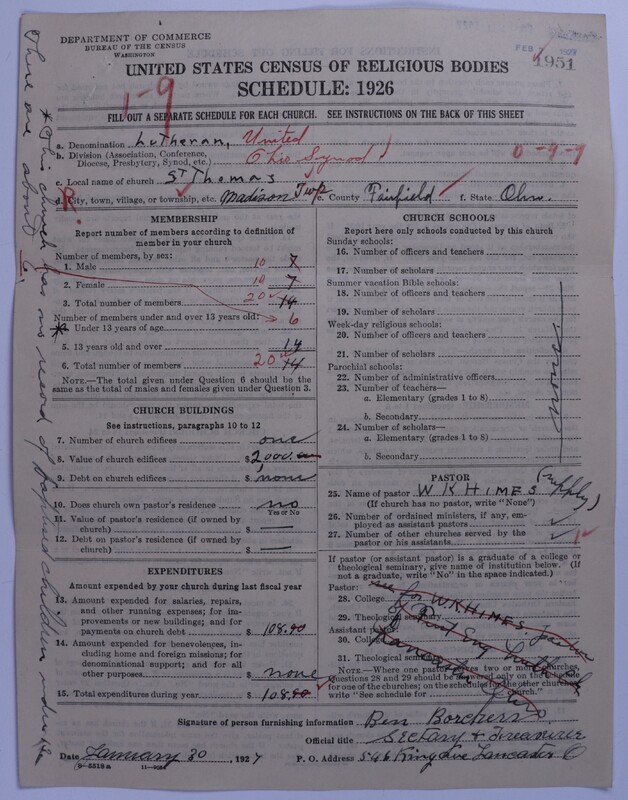 DEPARTMENT OF COMMERCE
BUREAU OF THE CENSUS
WASHINGTON
FEB 1927
1951
UNITED STATES CENSUS OF RELIGIOUS BODIES
SCHEDULE: 1926
1-9
FILL OUT A SEPARATE SCHEDULE FOR EACH CHURCH. SEE INSTRUCTIONS ON THE BACK OF THIS SHEET
a. Denomination Lutheran, United
b. Division (Association, Conference, Diocese, Presbytery, Synod, etc.) Ohio Synod
0-9-9
c. Local name of church St Thomas
R.
d. City, town, village, or township, etc. Madison Twp e. County Fairfield f. State Ohio.
MEMBERSHIP
Report number of members according to definition of member in your church
Number of members, by sex:
1. Male 10 7
2. Female 10 7
3. Total number of members 20 14
Number of members under and over 13 years old: 6
* 4. Under 13 years of age
5. 13 years old and over 14
6. Total number of members 20 14
NOTE.—The total given under Question 6 should be the same as the total of males and females given under Question 3.
CHURCH BUILDINGS
See instructions, paragraphs 10 to 12
7. Number of church edifices one
8. Value of church edifices $ 2,000.00
9. Debt on church edifices $ none
10. Does church own pastor's residence no
Yes or No
11. Value of pastor's residence (if owned by church) $ —
12. Debt on pastor's residence (if owned by church) $ —
EXPENDITURES
Amount expended by your church during last fiscal year
13. Amount expended for salaries, repairs, and other running expenses; for improvements or new buildings; and for payments on church debt $ 108.40
14. Amount expended for benevolences, including home and foreign missions; for denominational support; and for all other purposes $ none
15. Total expenditures during year $ 108.40
CHURCH SCHOOLS
Report here only schools conducted by this church
Sunday schools:
16. Number of officers and teachers
17. Number of scholars
Summer vacation Bible schools:
18. Number of officers and teachers
19. Number of scholars
Week-day religious schools:
20. Number of officers and teachers
21. Number of scholars
Parochial schools:
22. Number of administrative officers
23. Number of teachers—
a. Elementary (grades 1 to 8)
b. Secondary
24. Number of scholars—
a. Elementary (grades 1 to 8)
b. Secondary
none
PASTOR
25. Name of pastor W K HIMES (supply)
(If church has no pastor, write "None")
26. Number of ordained ministers, if any, employed as assistant pastors
27. Number of other churches served by the pastor or his assistants 1
If pastor (or assistant pastor) is a graduate of a college or theological seminary, give name of institution below. (If not a graduate, write "No" in the space indicated.)
Pastor:
28. College
29. Theological seminary
Assistant pastor:
30. College
31. Theological seminary
see for W.K HIMES. Pastor
of First Eng Lutheran
Lancaster Ohio
NOTE.—Where one pastor serves two or more churches, Questions 28 and 29 should be answered only on the schedule for one of the churches; on the schedules for the other churches write "See schedule for church."
Signature of person furnishing information Ben Borchers
Official title Sectary & Treasurer
Date January 20, 1927 P. O. Address 546 King Ave Lancaster O
(9—5518a) 11—9054
* This church has no record of baptised children under 13.
There are about 6.